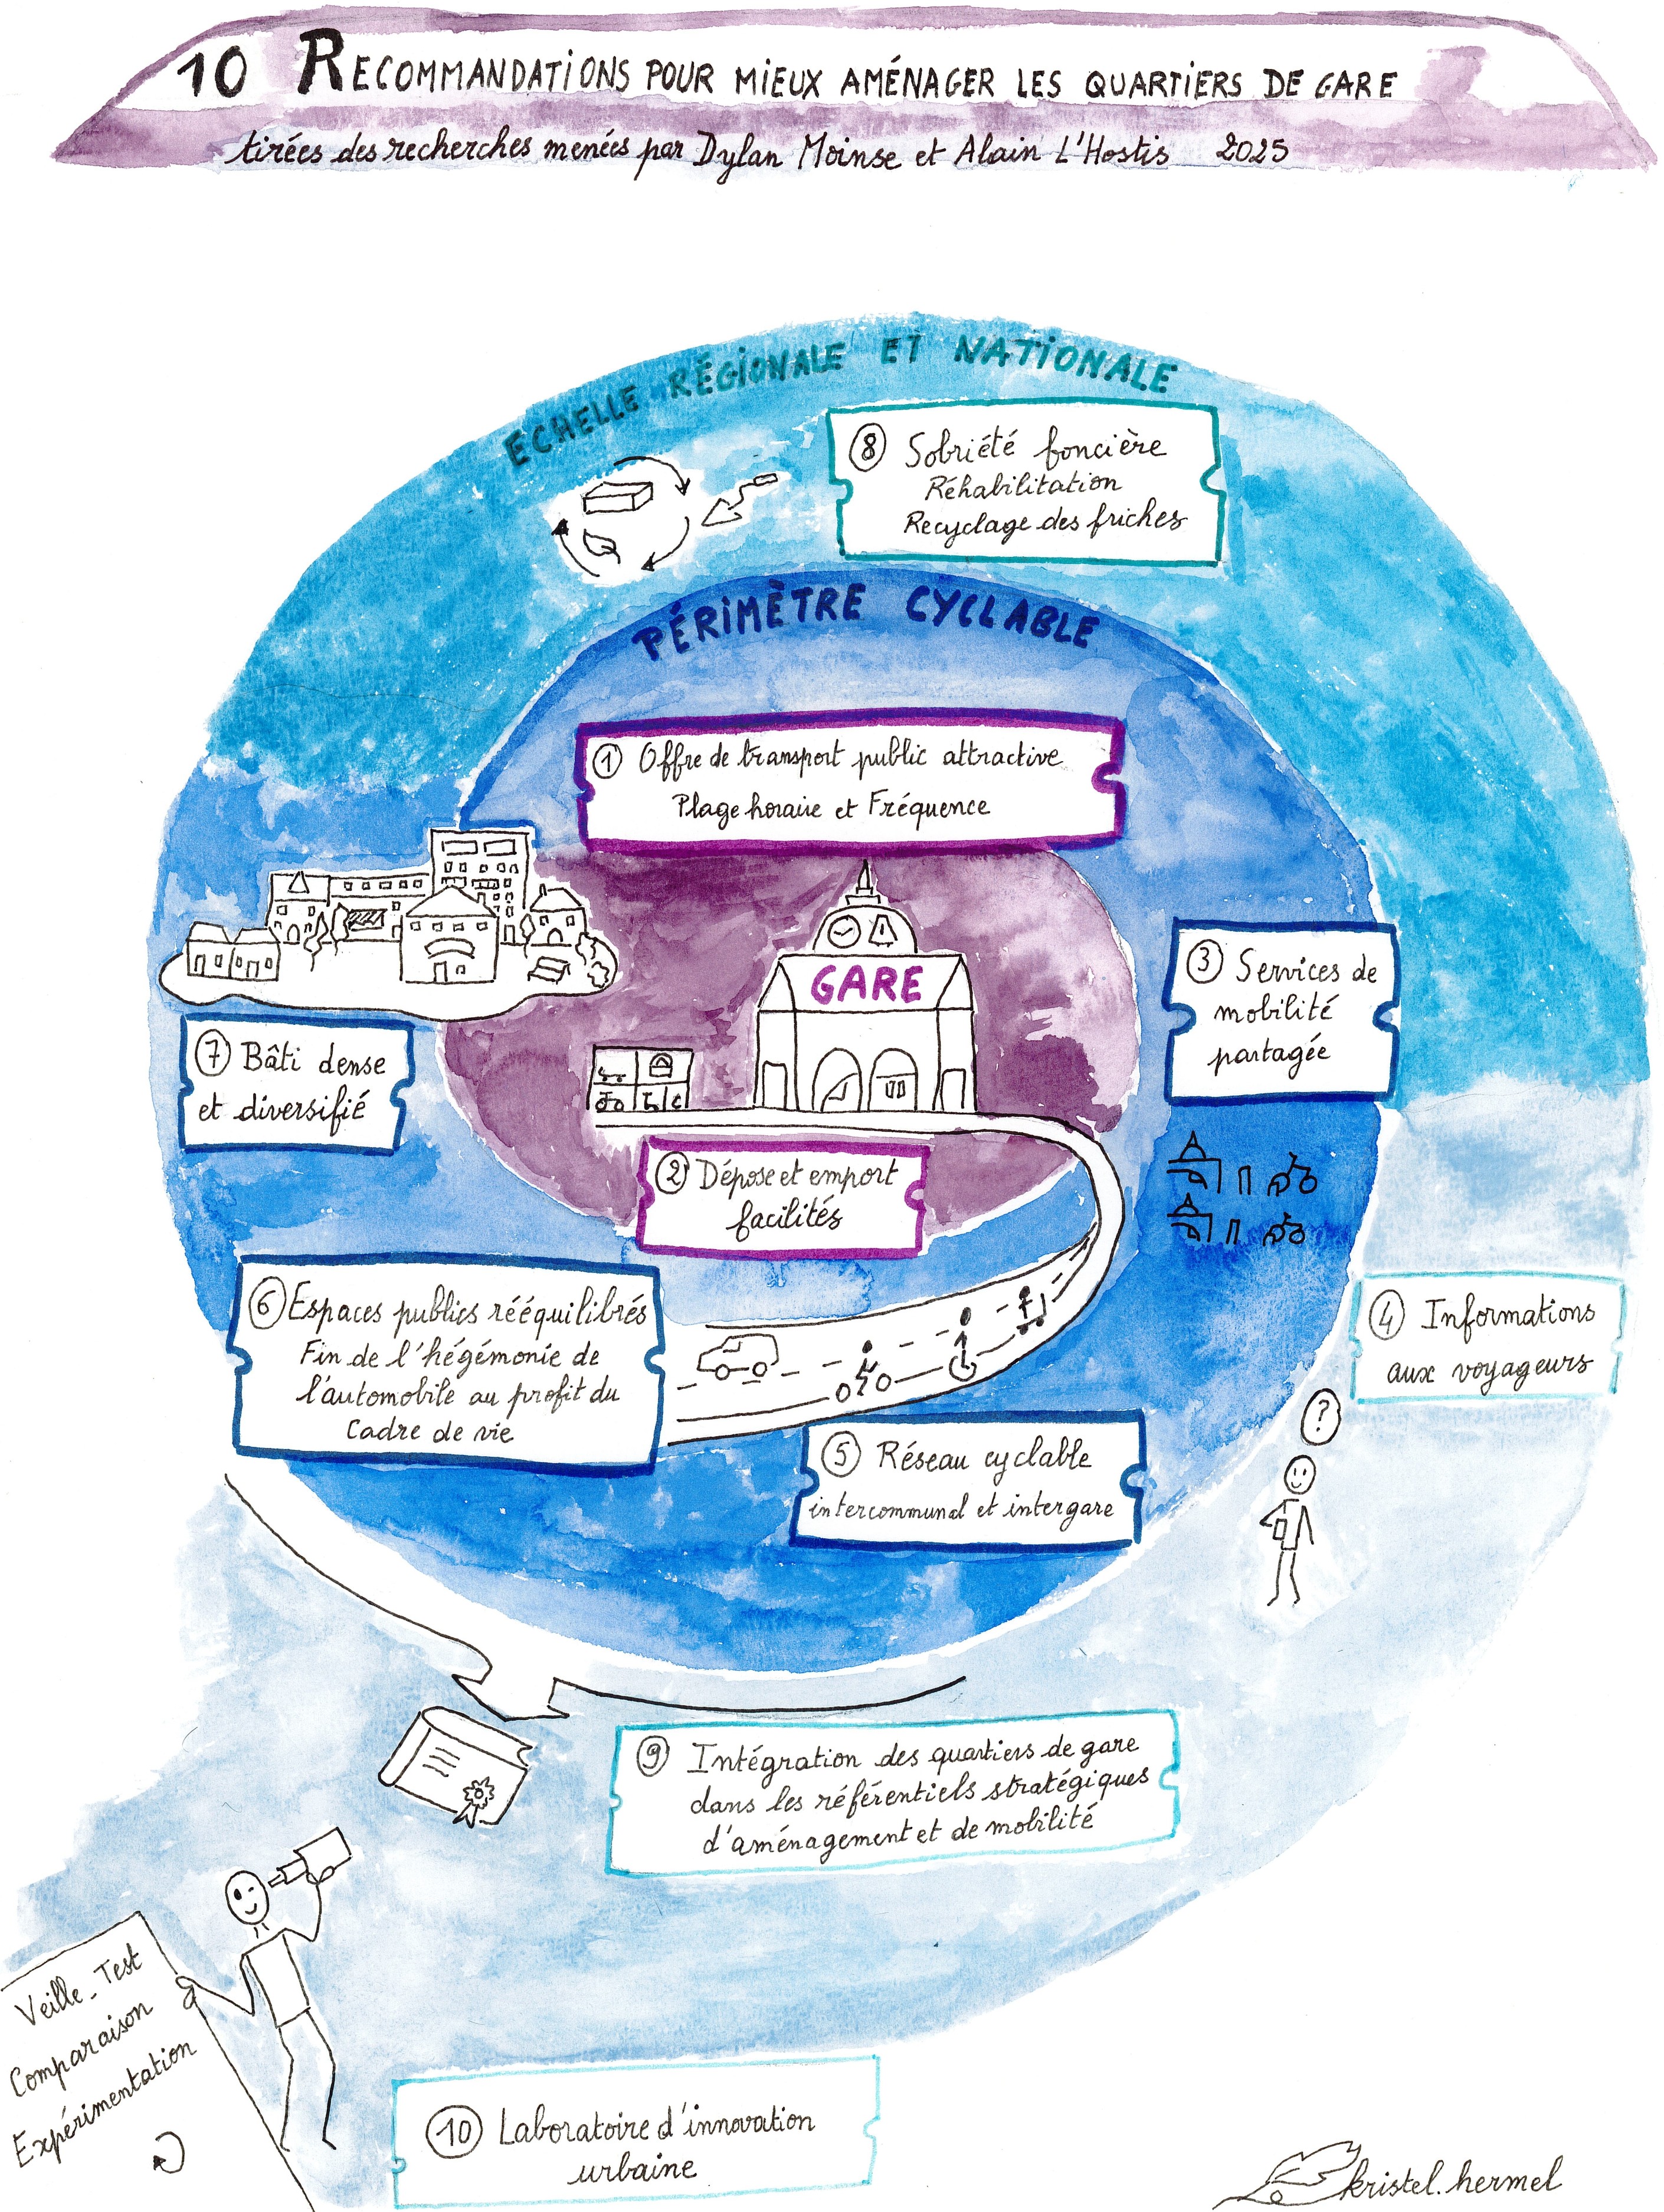 10 RECOMMANDATIONS POUR MIEUX AMÉNAGER LES QUARTIERS DE GARE
tirées des recherches menées par Dylan Moinse et Alain L'Hostis 2025
ECHELLE RÉGIONALE ET NATIONALE
8 Sobriété foncière
Réhabilitation
Recyclage des friches
PÉRIMÈTRE CYCLABLE
1 Offre de transport public attractive
Plage horaire et Fréquence
GARE
3 Services de
mobilité
partagée
7 Bâti dense
et diversifié
2 Dépose et emport
facilités
6 Espaces publics rééquilibrés
Fin de l'hégémonie de
l'automobile au profit du
Cadre de vie
4 Informations
aux voyageurs
?
5 Réseau cyclable
intercommunal et intergare
9 Intégration des quartiers de gare
dans les référentiels stratégiques
d'aménagement et de mobilité
Veille - Test
Comparaison
Expérimentation
10 Laboratoire d'innovation
urbaine
kristel.hermel